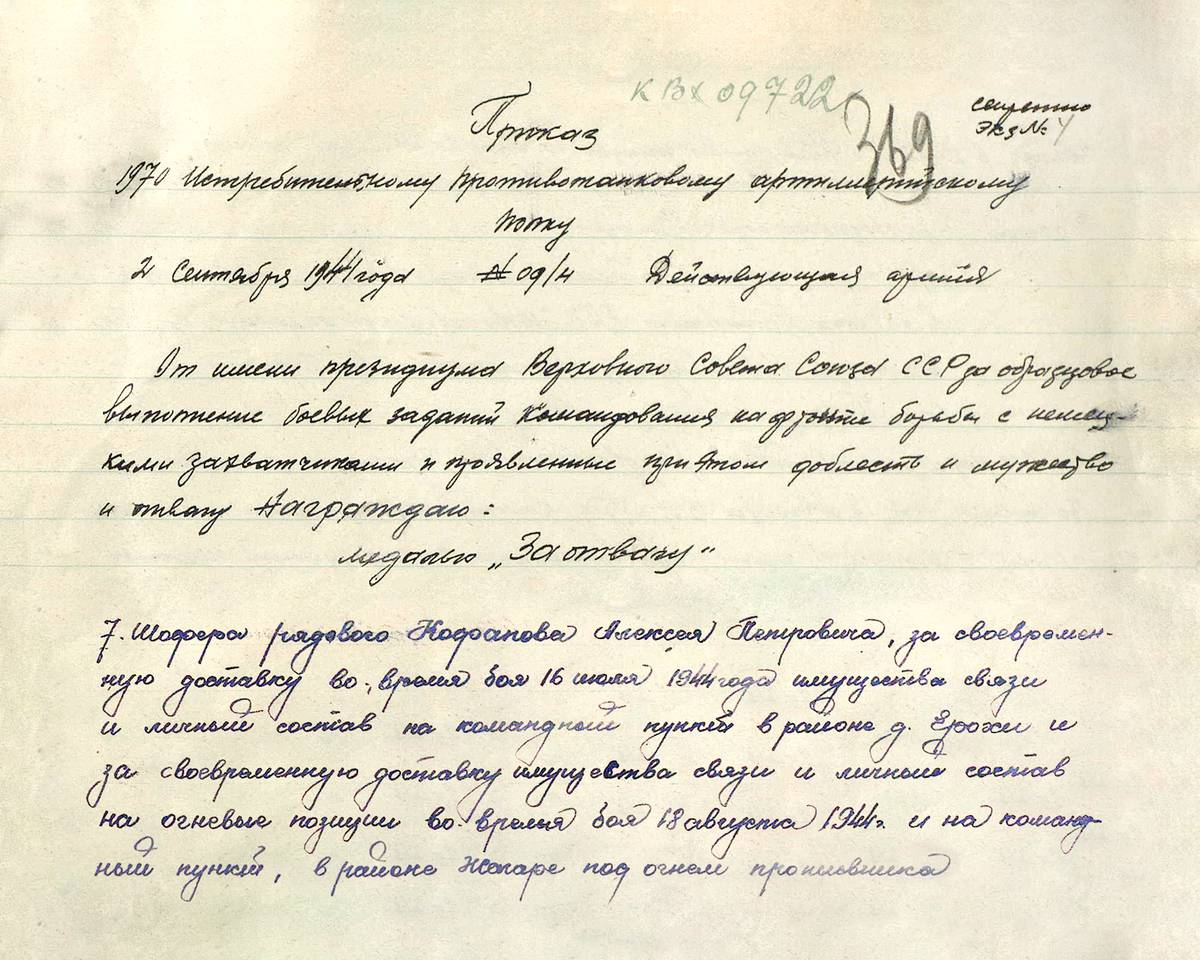 К Вх 09722
369
секретно
Экз № 4
Приказ
1970 Истребительному противотанковому артиллерийскому
полку
2 Сентября 1944 года № 09/н Действующая армия
От имени президиума Верховного Совета Союза ССР за образцовое
выполнение боевых заданий Командования на фронте борьбы с немец-
кими захватчиками и проявленные при этом доблесть и мужество
и отвагу Награждаю:
медалью „За отвагу"
7. Шофера рядового Алексея Петровича, за своевремен-
ную доставку во время боя 16 июля 1944 года имущества связи
и личный состав на командный пункт в районе д. Ерохи и
за своевременную доставку имущества связи и личный состав
на огневые позиции во время боя 18 августа 1944г. и на команд-
ный пункт, в районе под огнем противника